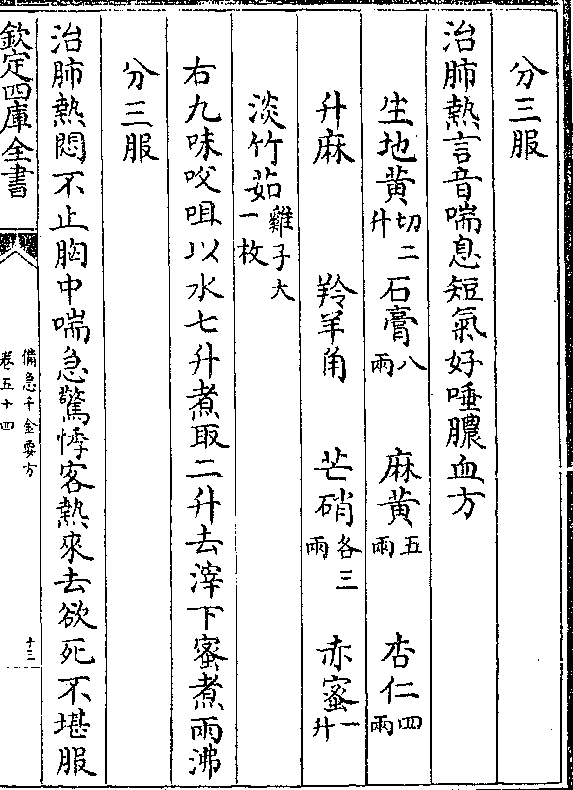 分三服
治肺熱言音喘息短氣好唾膿血方
生地黃切二升 石膏八兩 麻黃五兩 杏仁四兩
升麻 羚羊角 芒硝各三兩 赤蜜一升
淡竹茹雞子大一枚
右九味㕮咀以水七升煮取二升去滓下蜜煮兩沸
分三服
治肺熱悶不止胸中喘急驚悸客熱來去欲死不堪服
欽定四庫全書
備急千金要方
卷五十四
十三